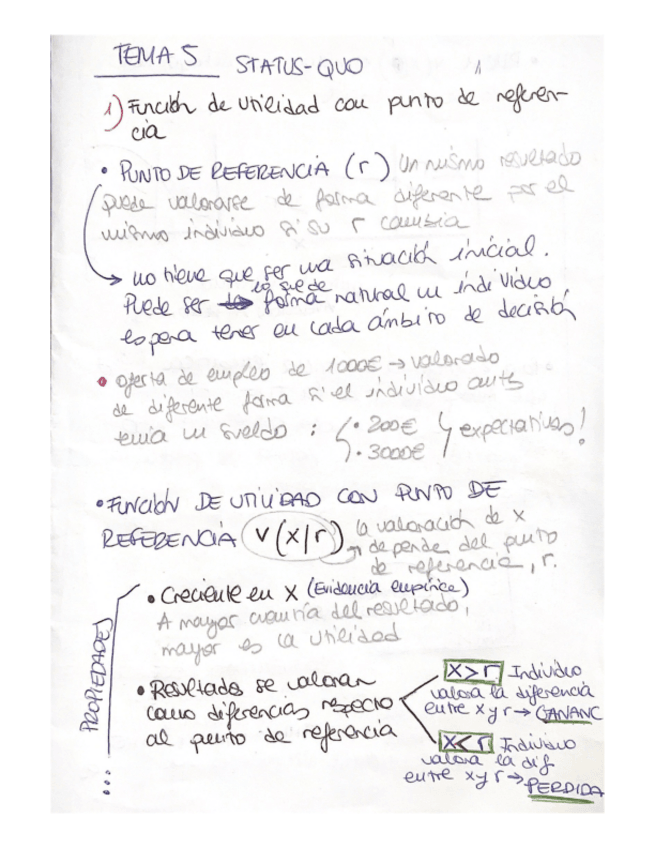 TEMA 5 STATUS-QUO 1
1) Función de utilidad con punto de referen-
cia
• PUNTO DE REFERENCIA (r) Un mismo resultado
puede valorarse de forma diferente por el
mismo individuo si su r cambia
→ no tiene que ser una situación inicial.
Puede ser lo que de forma natural un individuo
espera tener en cada ámbito de decisión
• oferta de empleo de 1000€ → valorado
de diferente forma si el individuo antes
tenía un sueldo : { • 200€
• 3000€ } expectativas!
• FUNCIÓN DE UTILIDAD CON PUNTO DE
REFERENCIA V(x|r) → la valoración de x
depende del punto
de referencia, r.
PROPIEDADES ...
• Creciente en X (Evidencia empírica)
A mayor cuantía del resultado,
mayor es la utilidad
• Resultados se valoran
como diferencias respecto
al punto de referencia
X>r Individuo
valora la diferencia
entre x y r → GANANC
X<r Individuo
valora la dif
entre x y r → PERDIDA